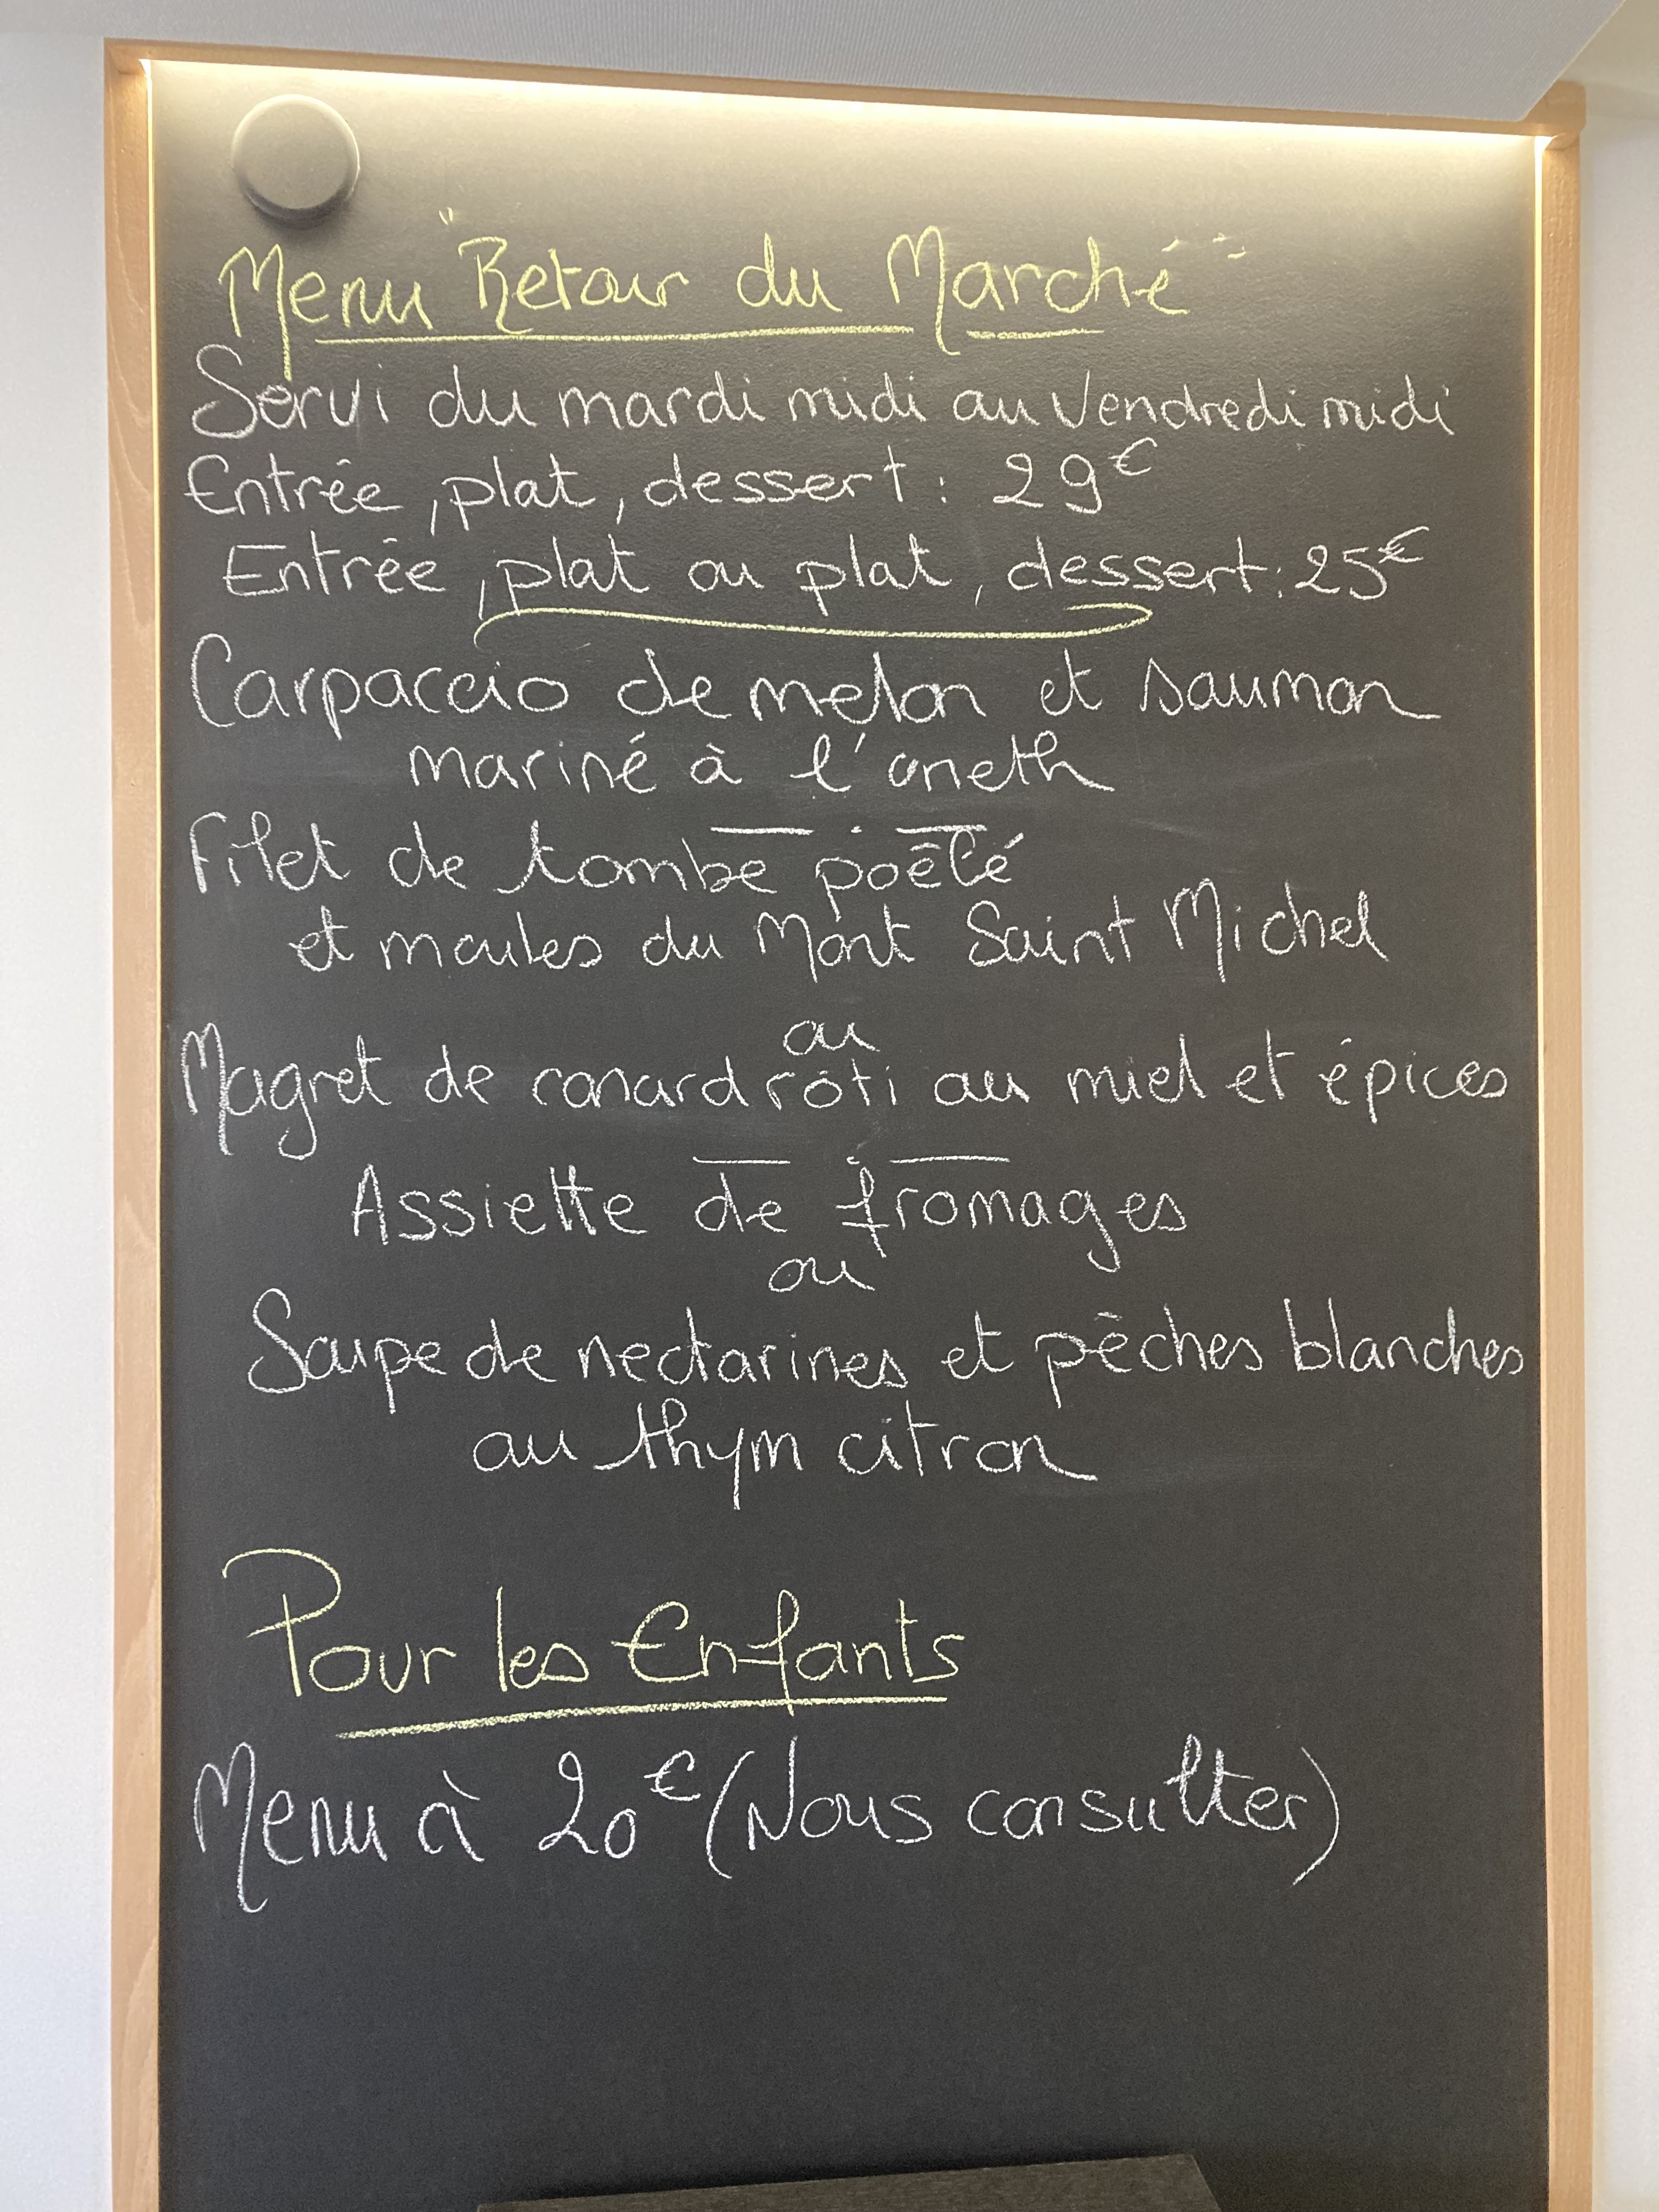 Menu "Retour du Marché"
Servi du mardi midi au Vendredi midi
Entrée, plat, dessert : 29€
Entrée, plat ou plat, dessert : 25€
Carpaccio de melon et saumon
mariné à l'aneth
Filet de tombe poêlé
et moules du Mont Saint Michel
ou
Magret de canard rôti au miel et épices
Assiette de fromages
ou
Soupe de nectarines et pêches blanches
au thym citron
Pour les Enfants
Menu à 20€ (Nous consulter)